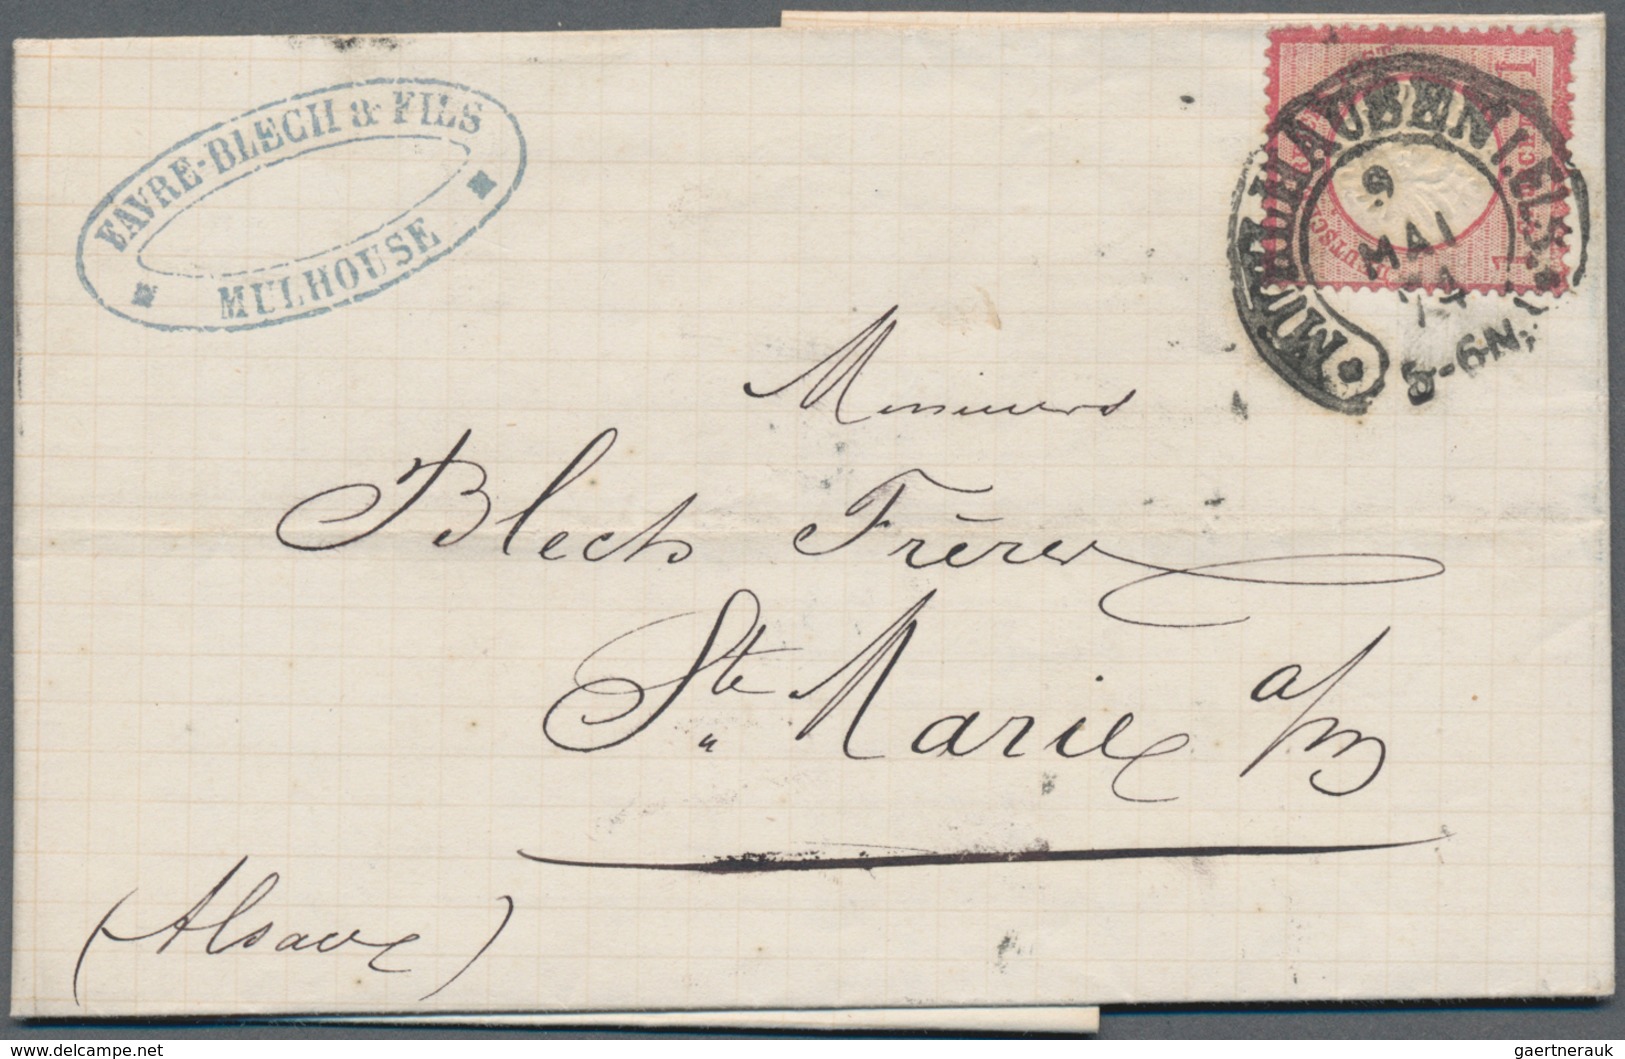 FAVRE-BLECH & FILS
MULHOUSE
MUELHAUSEN I. ELS.
9
MAI
74
5-6N.
1
1
Messieurs
Blech Frères
Ste Marie a/m
(Alsace)
delcampe.net
gaertnerauk